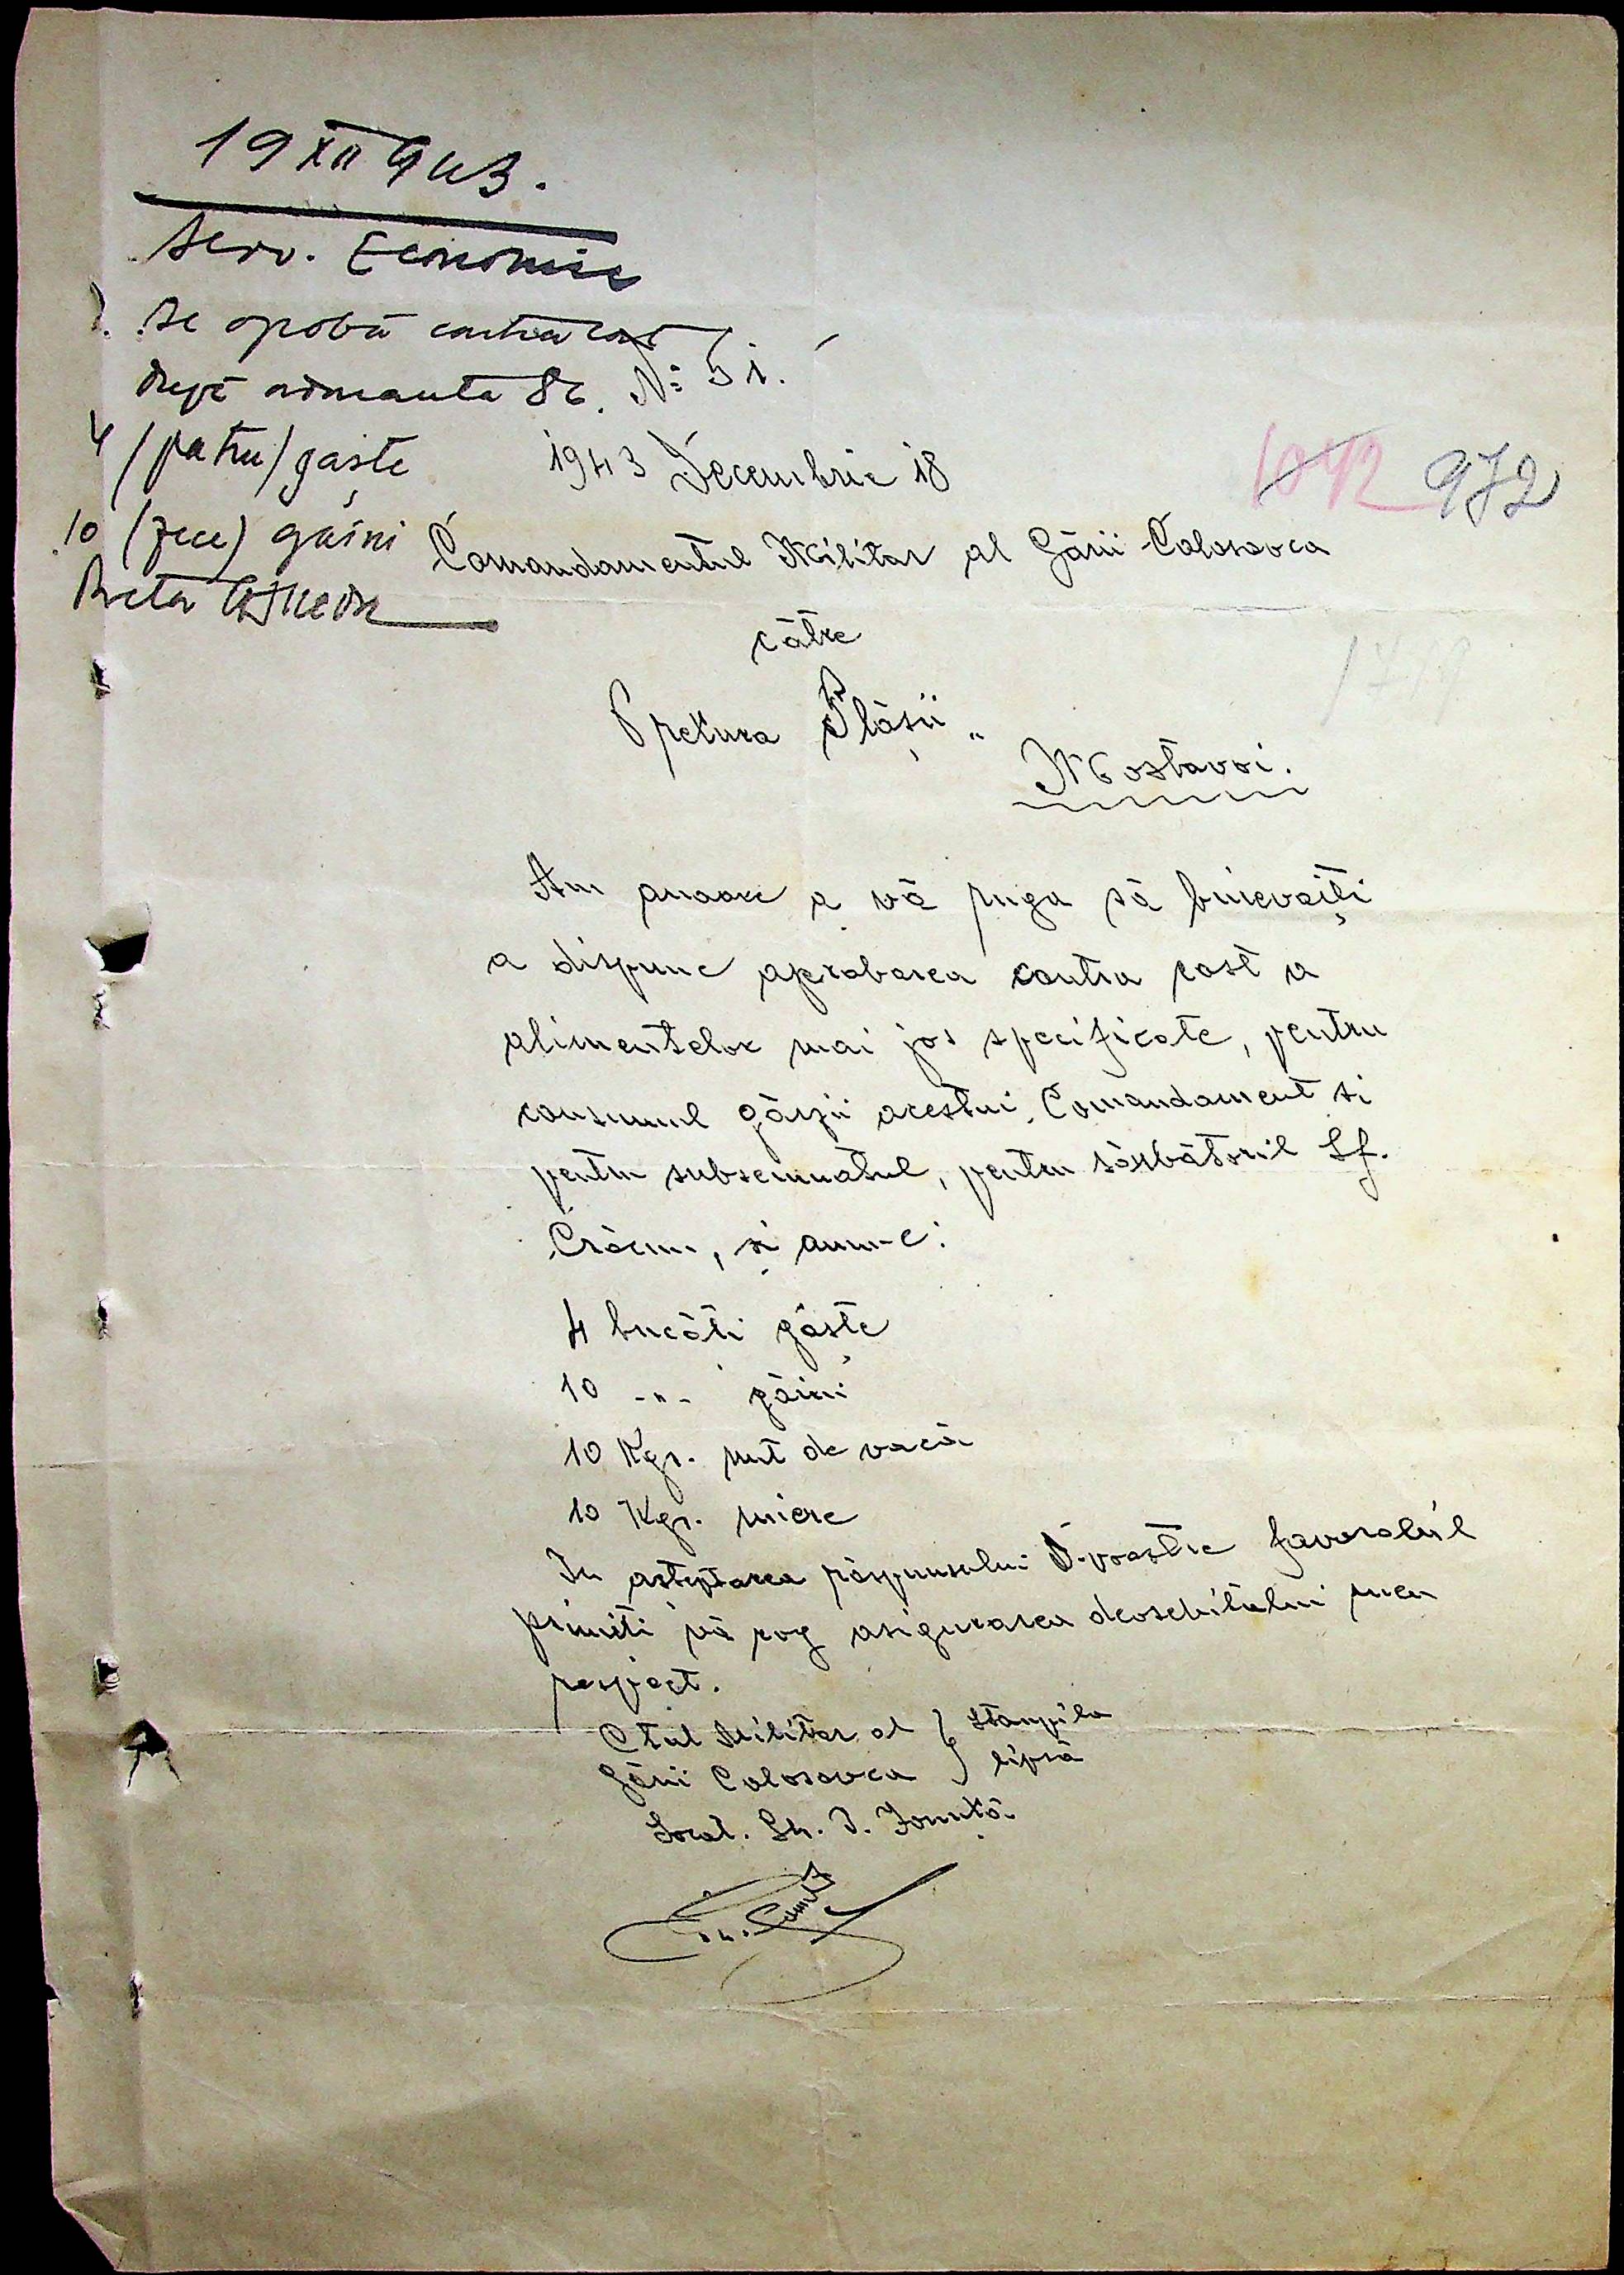 19 XII 943.
Serv. Economic
Se aprobă contra cost
după
4 /patru/ gaște
10 (zece) găini
Pretor
No 51.
1943 Decembrie 18
1042 972
Comandamentul Militar al Gării Colosovca
către
Pretura Plăşii "
Mostovoi.
Am onoare a vă ruga să binevoiţi
a dispune aprobarea contra cost a
alimentelor mai jos specificate, pentru
consumul gărzii acestui Comandament si
pentru subsemnatul, pentru sărbătoril Sf.
Crăciun, și anume:
4 bucăti gâşte
10 -"- găini
10 Kgr. unt de vacă
10 Kgr. miere
In asteptarea răspunsului D-voastre favorabil
primiti vă rog asigurarea deosebitului meu
respect.
Ctul Militar al } Stampila
Gării Colosovca } lipsă
Locot. Gh. I. Ionuță